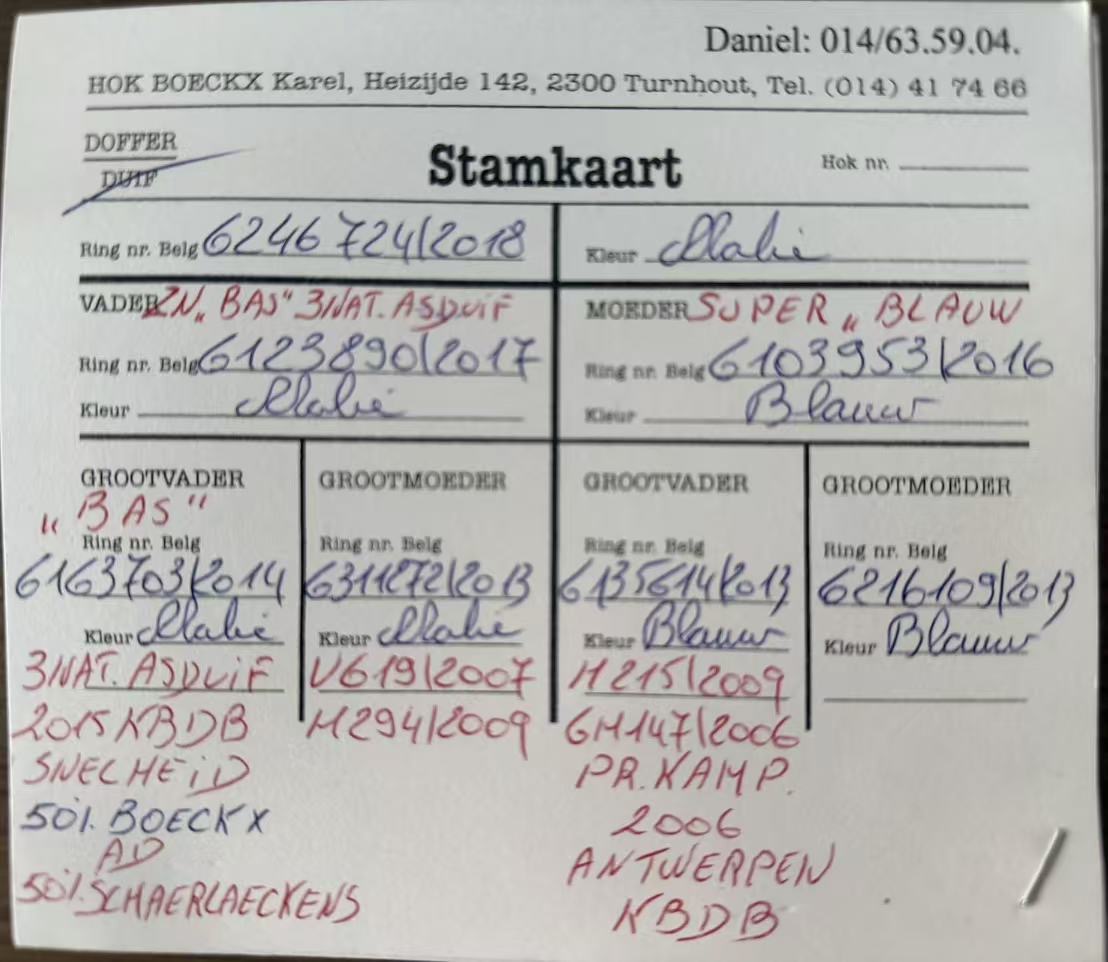 Daniel: 014/63.59.04.
HOK BOECKX Karel, Heizijde 142, 2300 Turnhout, Tel. (014) 41 74 66
DOFFER
DUIF
Stamkaart
Hok nr.
Ring nr. Belg 6246724/2018
Kleur
VADER ZN „BAS" 3NAT. ASDUIF
Ring nr. Belg 6123890/2017
Kleur
MOEDER SUPER „BLAUW
Ring nr. Belg 6103953/2016
Kleur Blauw
GROOTVADER
„BAS"
Ring nr. Belg
6163703/2014
Kleur
3NAT. ASDUIF
2015 KBDB
SNELHEID
50%. BOECKX
AD
50%. SCHAERLAECKENS
GROOTMOEDER
Ring nr. Belg
6311272/2013
Kleur
V619/2007
H294/2009
GROOTVADER
Ring nr. Belg
6135614/2013
Kleur Blauw
H215/2009
GH147/2006
PR. KAMP.
2006
ANTWERPEN
KBDB
GROOTMOEDER
Ring nr. Belg
6216109/2013
Kleur Blauw